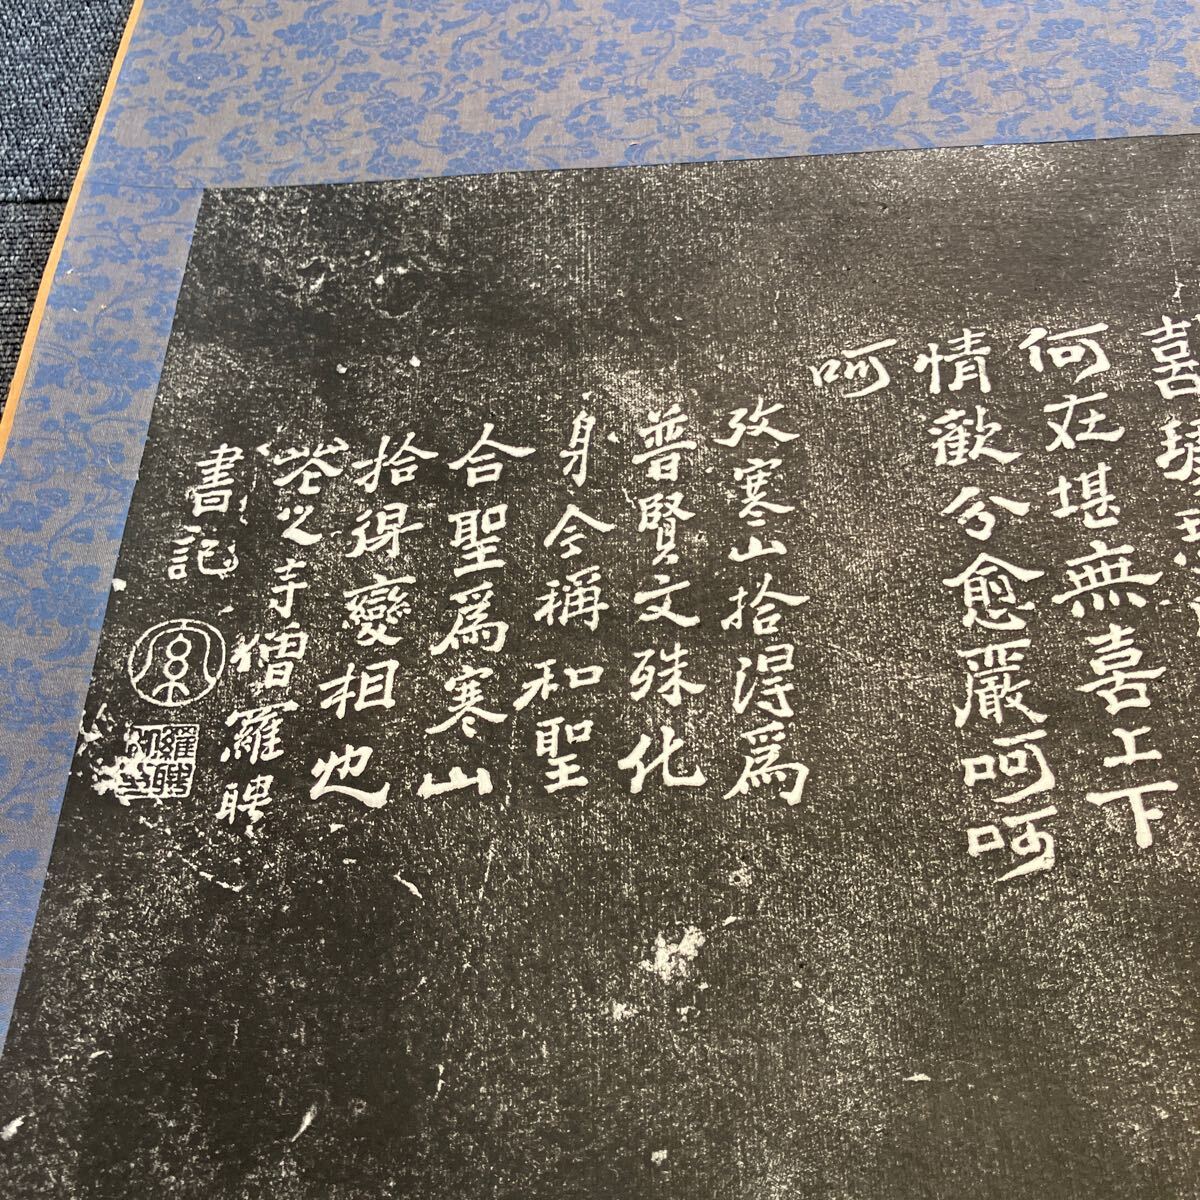 喜
何在堪無喜上下
情歡分愈嚴呵呵
呵
攷寒山拾得為
普賢文殊化
身今稱和聖
合聖為寒山
拾得變相也
花之寺僧羅聘
書記
羅聘